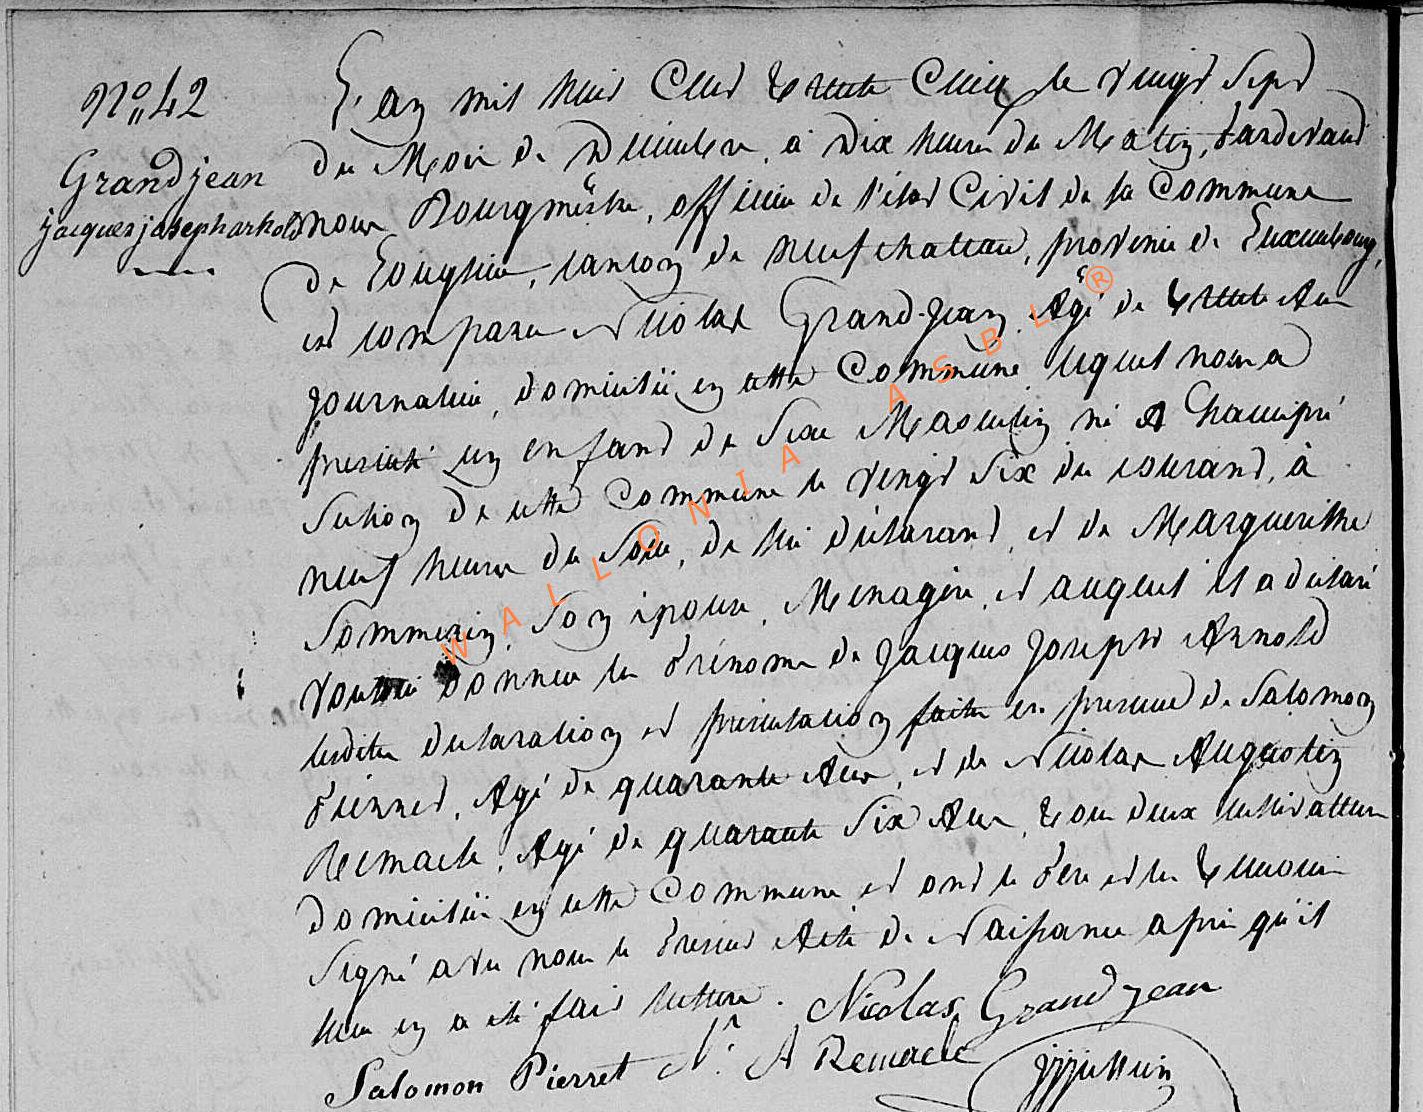 N° 42
Grandjean
jacques joseph arnold
L'an mil huit Cent trente Cinq le vingt Sept
du Mois de Decembre, à Dix heures du Matin, Pardevant
nous Bourgmestre, officier de l'état Civil de la Commune
de Longlier, canton de Neufchateau, province de Luxembourg,
est comparu Nicolas Grand-Jean Agé de trente Ans
Journalier, domicilié en cette Commune lequel nous a
presenté un enfant de Sexe Masculin né A
Section de cette Commune le vingt Six du courant, à
neuf heures du Soir, de lui déclarant, et de Marguerithe
Sommerin Son épouse, Menagere, et auquel il a déclaré
vouloir donner les Prénoms de Jacques Joseph Arnold
lesdites declaration et presentation faites en presence de Salomon
Pierret, Agé de quarante Ans, et de Nicolas Augustin
Remacle, Agé de quarante Six Ans, tous deux cultivateurs
Domiciliés en cette Commune et ont le Pere et les temoins
Signé avec nous le Present Acte de Naissance après qu'il
leur en a été fait lecture. Nicolas Grandjean
Salomon Pierret N. A Remacle
WALLONIA ASBL ®